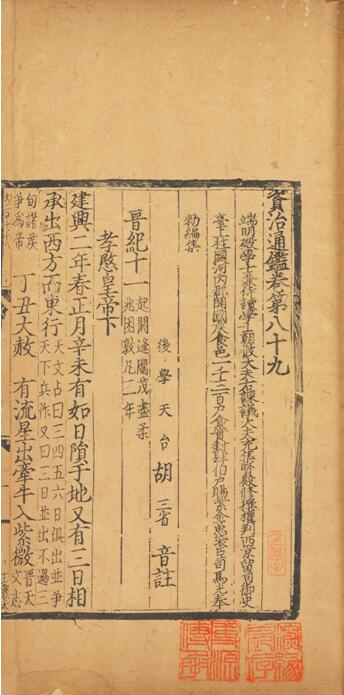 資治通鑑卷第八十九
端明殿學士兼翰林侍讀學士朝散大夫右諫議大夫充集賢殿修撰權判西京留司御史
臺上柱國河內郡開國侯食邑一千三百戶食實封肆伯戶賜紫金魚袋臣司馬光奉
勑編集
後學天台胡三省音註
晉紀十一起閼逢閹茂盡柔兆困敦凡三年
孝愍皇帝下
建興二年春正月辛未有如日隕于地又有三日相
承出西方而東行天文占曰三四五六日俱出並爭天下兵作又曰三日並出不過三
旬諸侯爭為帝
丁丑大赦
有流星出牽牛入紫微晉天文志